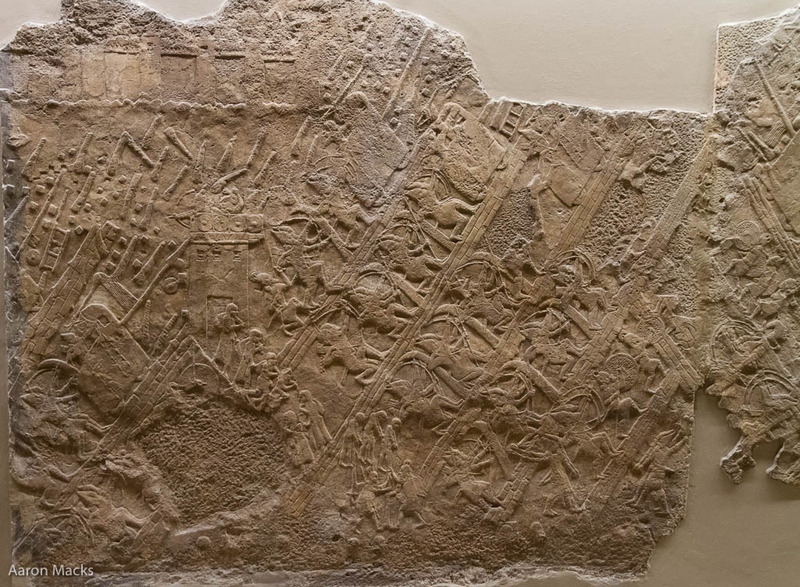 Aaron Macks